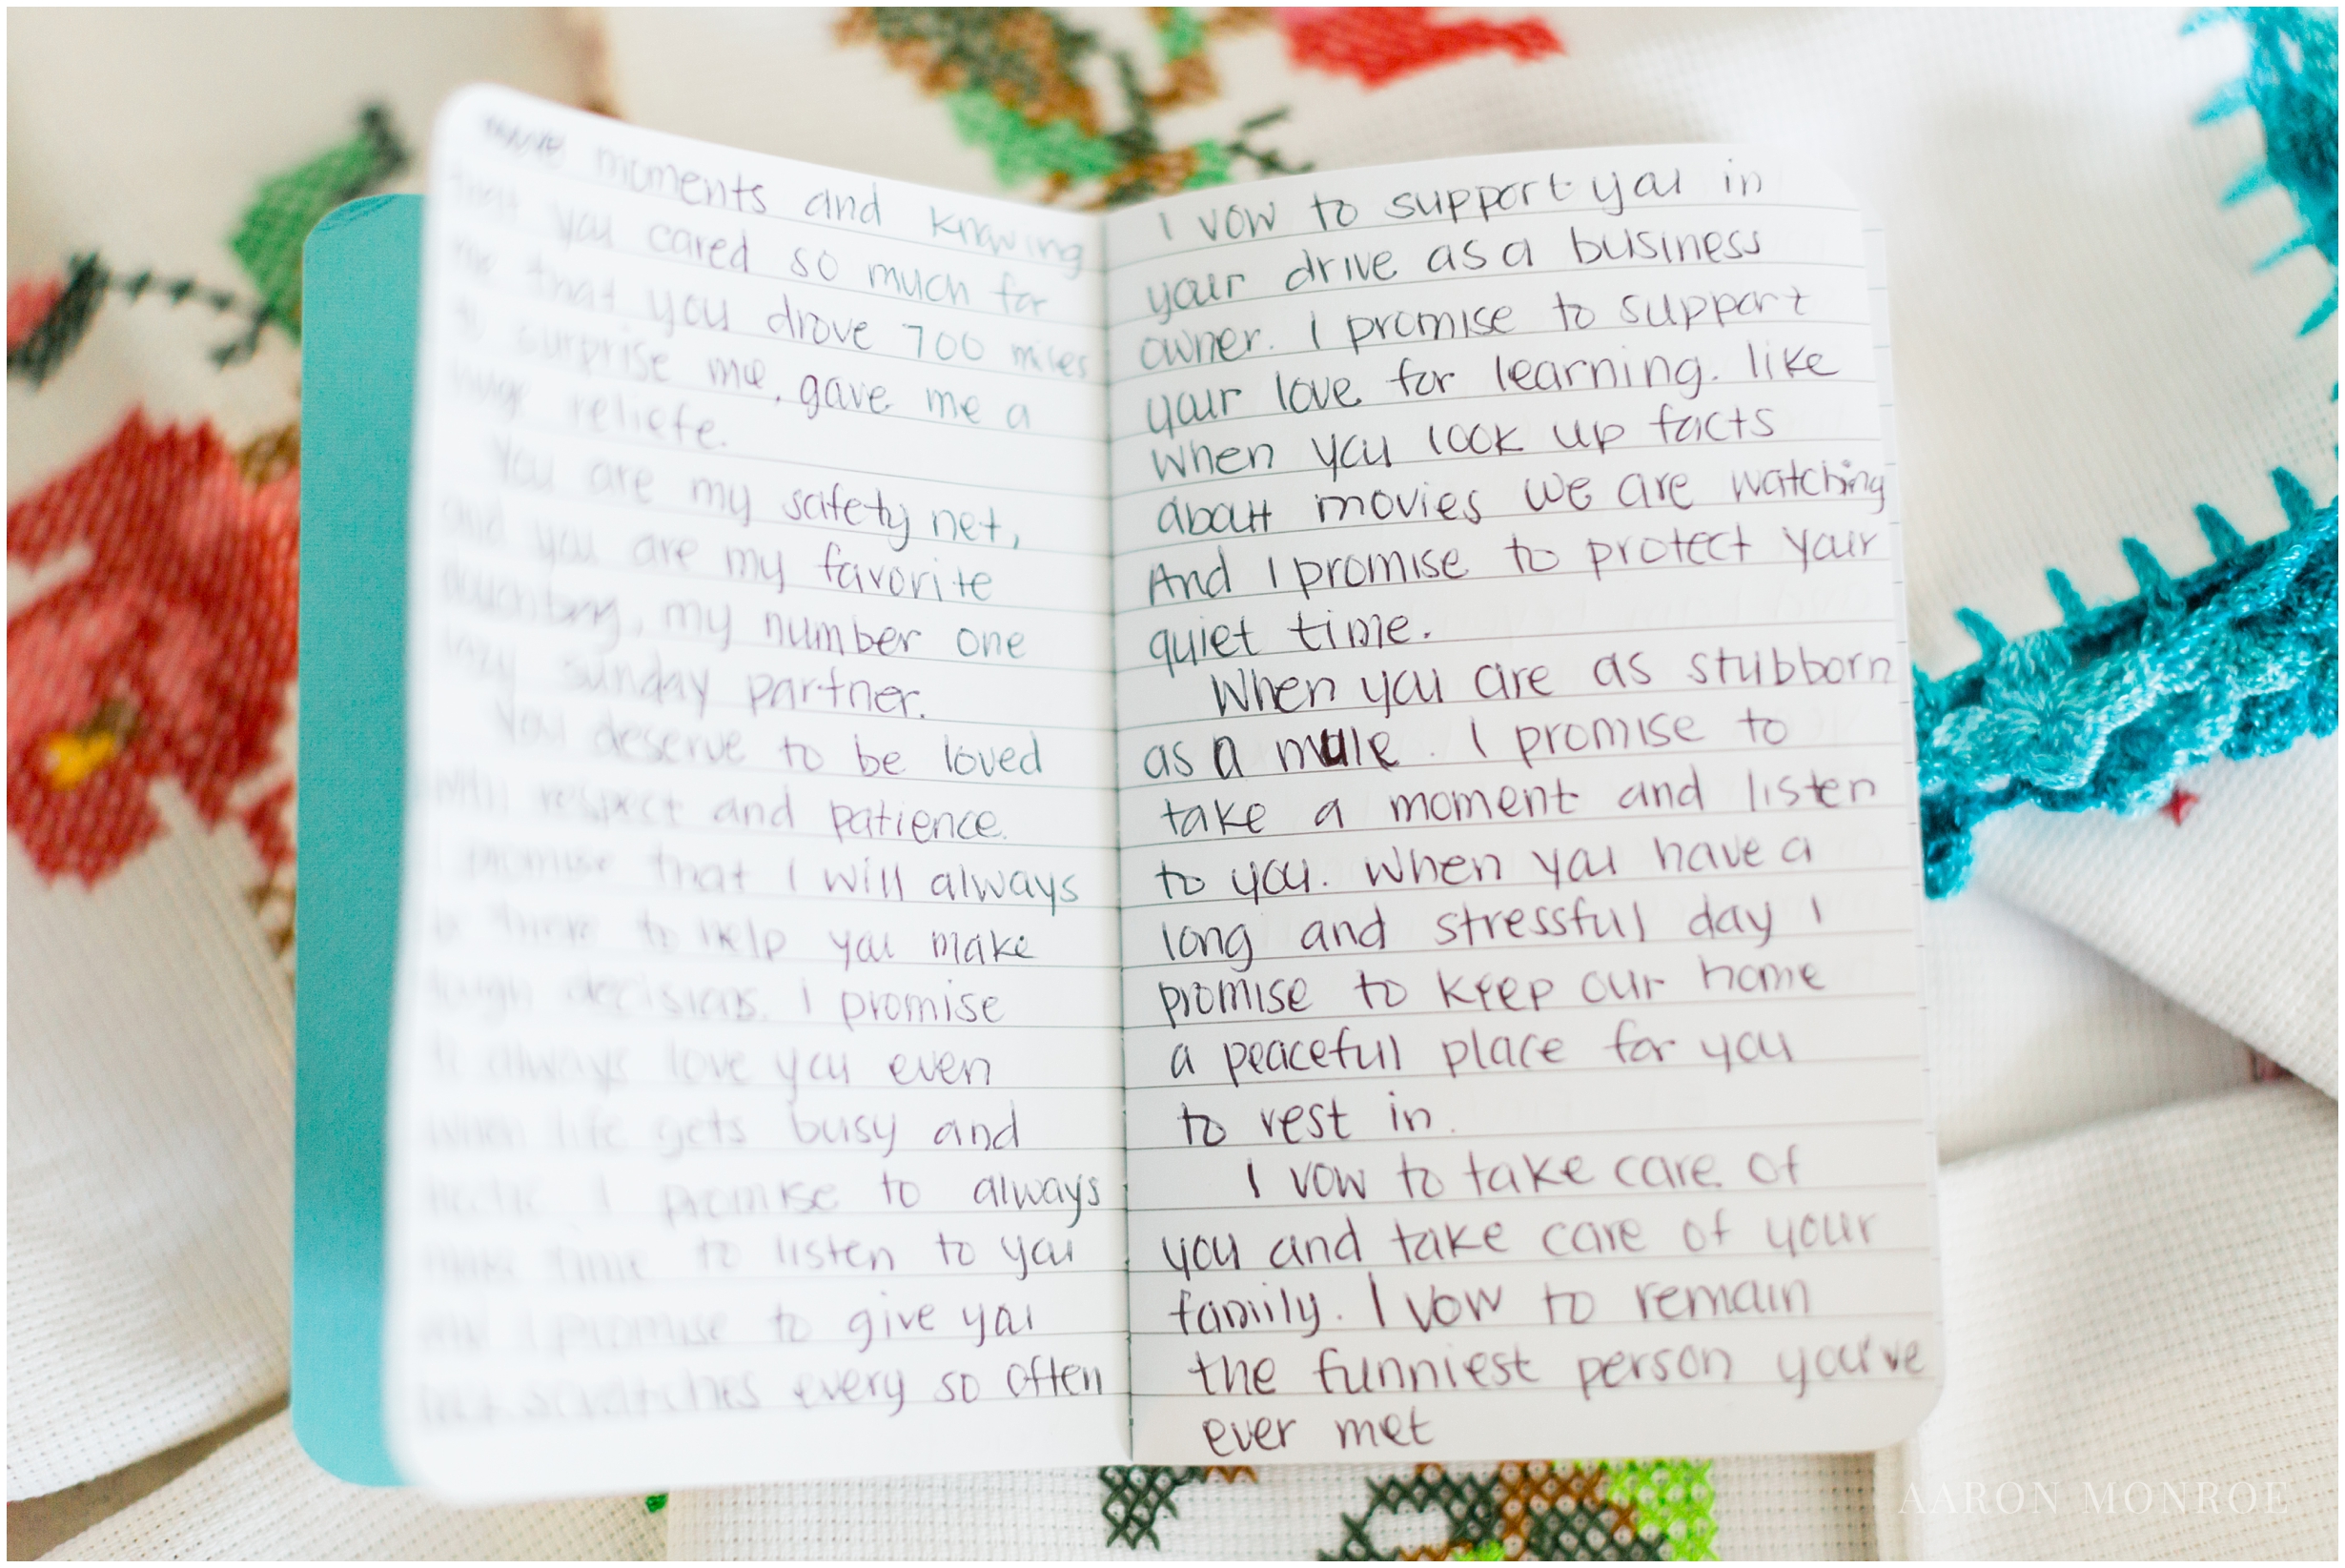 moments and knowing
that you cared so much for
me that you drove 700 miles
to surprise me, gave me a
huge reliefe.
You are my safety net,
and you are my favorite
my number one
lazy sunday partner.
You deserve to be loved
with respect and patience.
I promise that I will always
be there to help you make
tough decisions. I promise
to always love you even
when life gets busy and
hectic. I promise to always
make time to listen to you
and I promise to give you
back scratches every so often
I vow to support you in
your drive as a business
owner. I promise to support
your love for learning. like
when you look up facts
about movies we are watching
And I promise to protect your
quiet time.
When you are as stubborn
as a mule. I promise to
take a moment and listen
to you. When you have a
long and stressful day I
promise to keep our home
a peaceful place for you
to rest in.
I vow to take care of
you and take care of your
family. I vow to remain
the funniest person you've
ever met
AARON MONROE